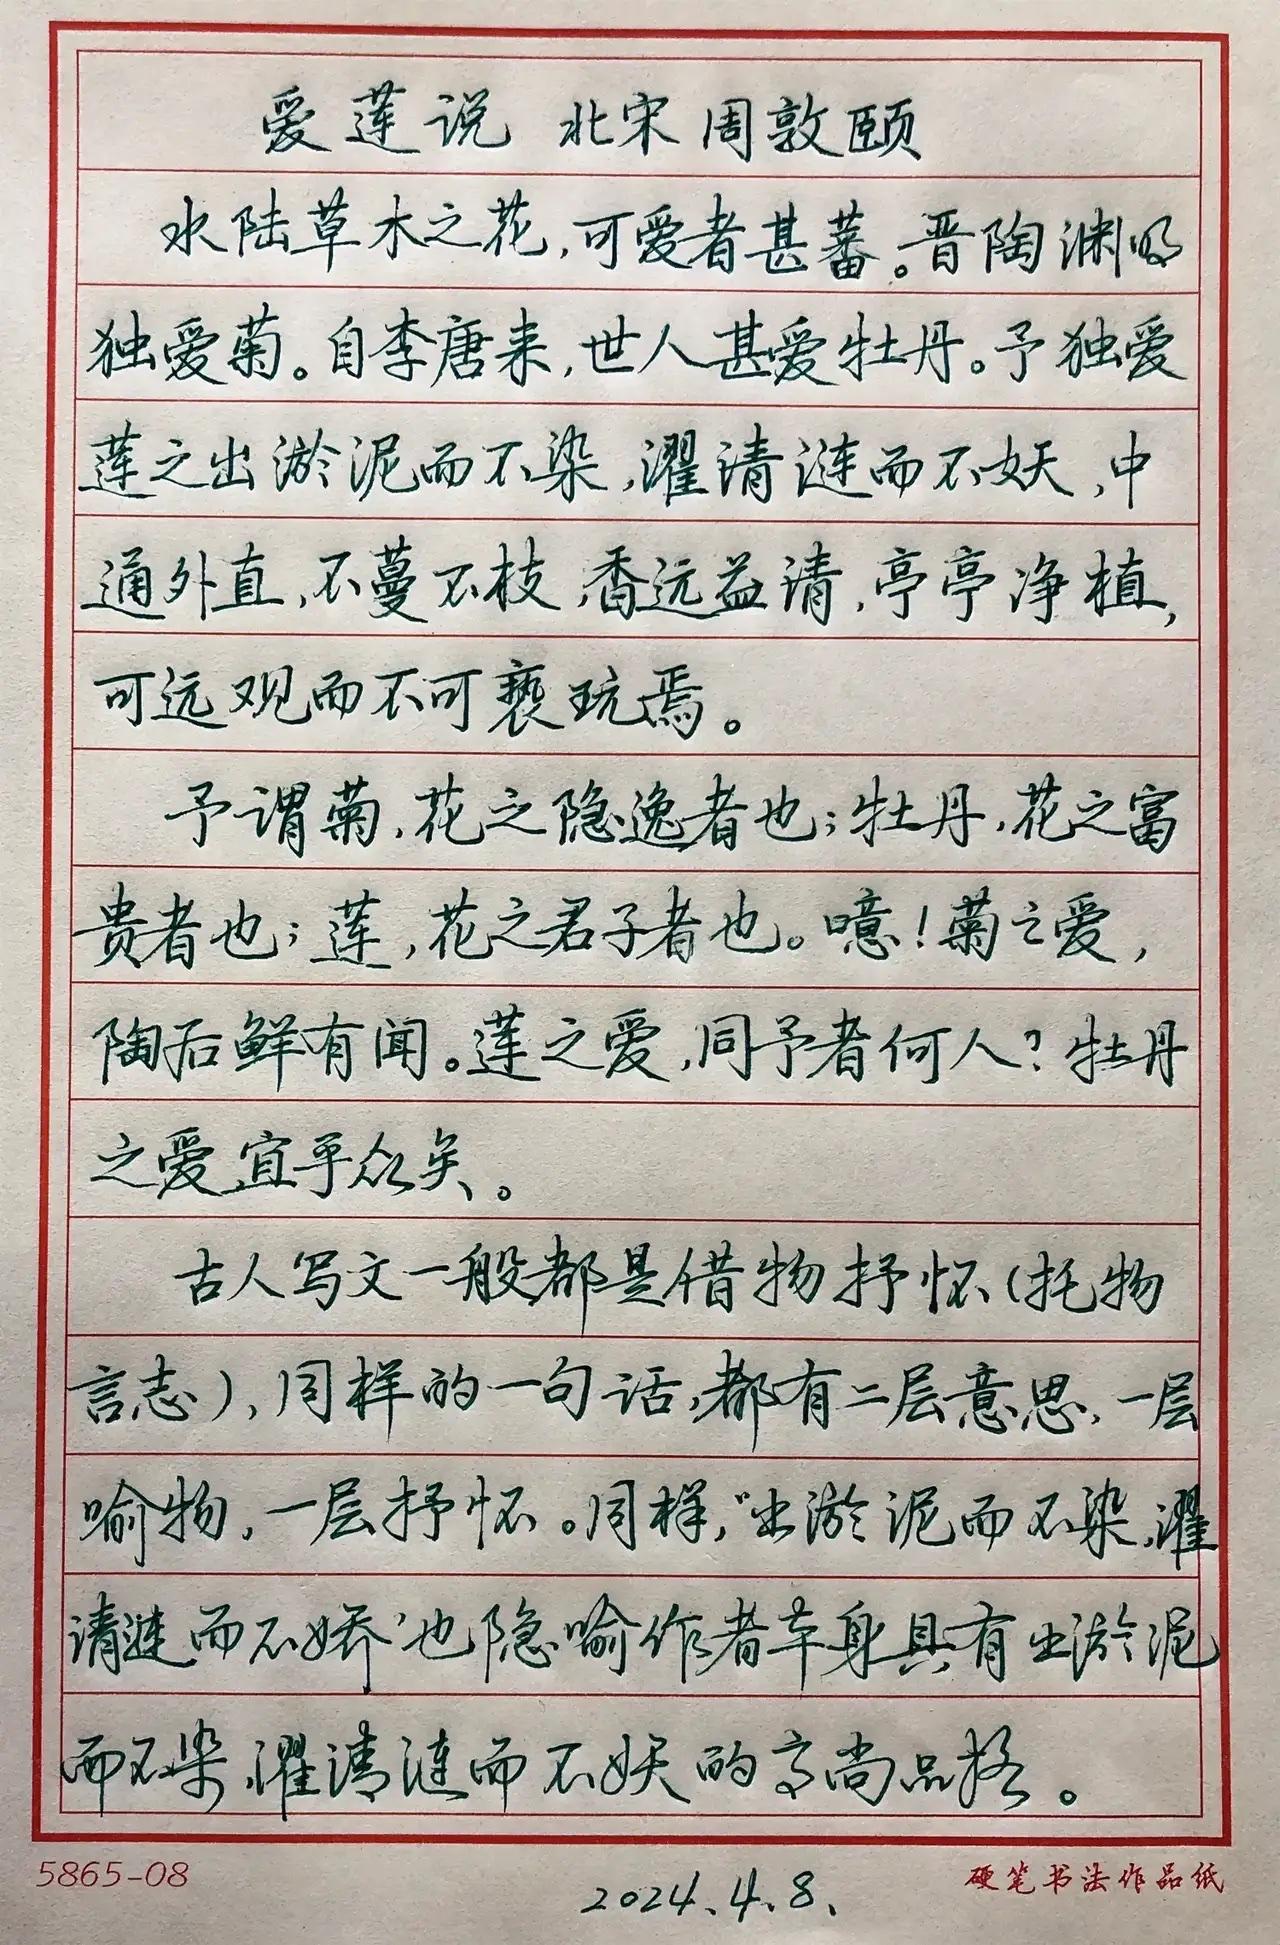 爱莲说 北宋周敦颐
水陆草木之花,可爱者甚蕃。晋陶渊明
独爱菊。自李唐来,世人甚爱牡丹。予独爱
莲之出淤泥而不染,濯清涟而不妖,中
通外直,不蔓不枝,香远益清,亭亭净植,
可远观而不可亵玩焉。
予谓菊,花之隐逸者也;牡丹,花之富
贵者也;莲,花之君子者也。噫!菊之爱,
陶后鲜有闻。莲之爱,同予者何人?牡丹
之爱宜乎众矣。
古人写文一般都是借物抒怀(托物
言志),同样的一句话,都有二层意思,一层
喻物,一层抒怀。同样,“出淤泥而不染,濯
清涟而不娇’也隐喻作者本身具有出淤泥
而不染,濯清涟而不妖的高尚品格。
5865-08
硬笔书法作品纸
2024.4.8.